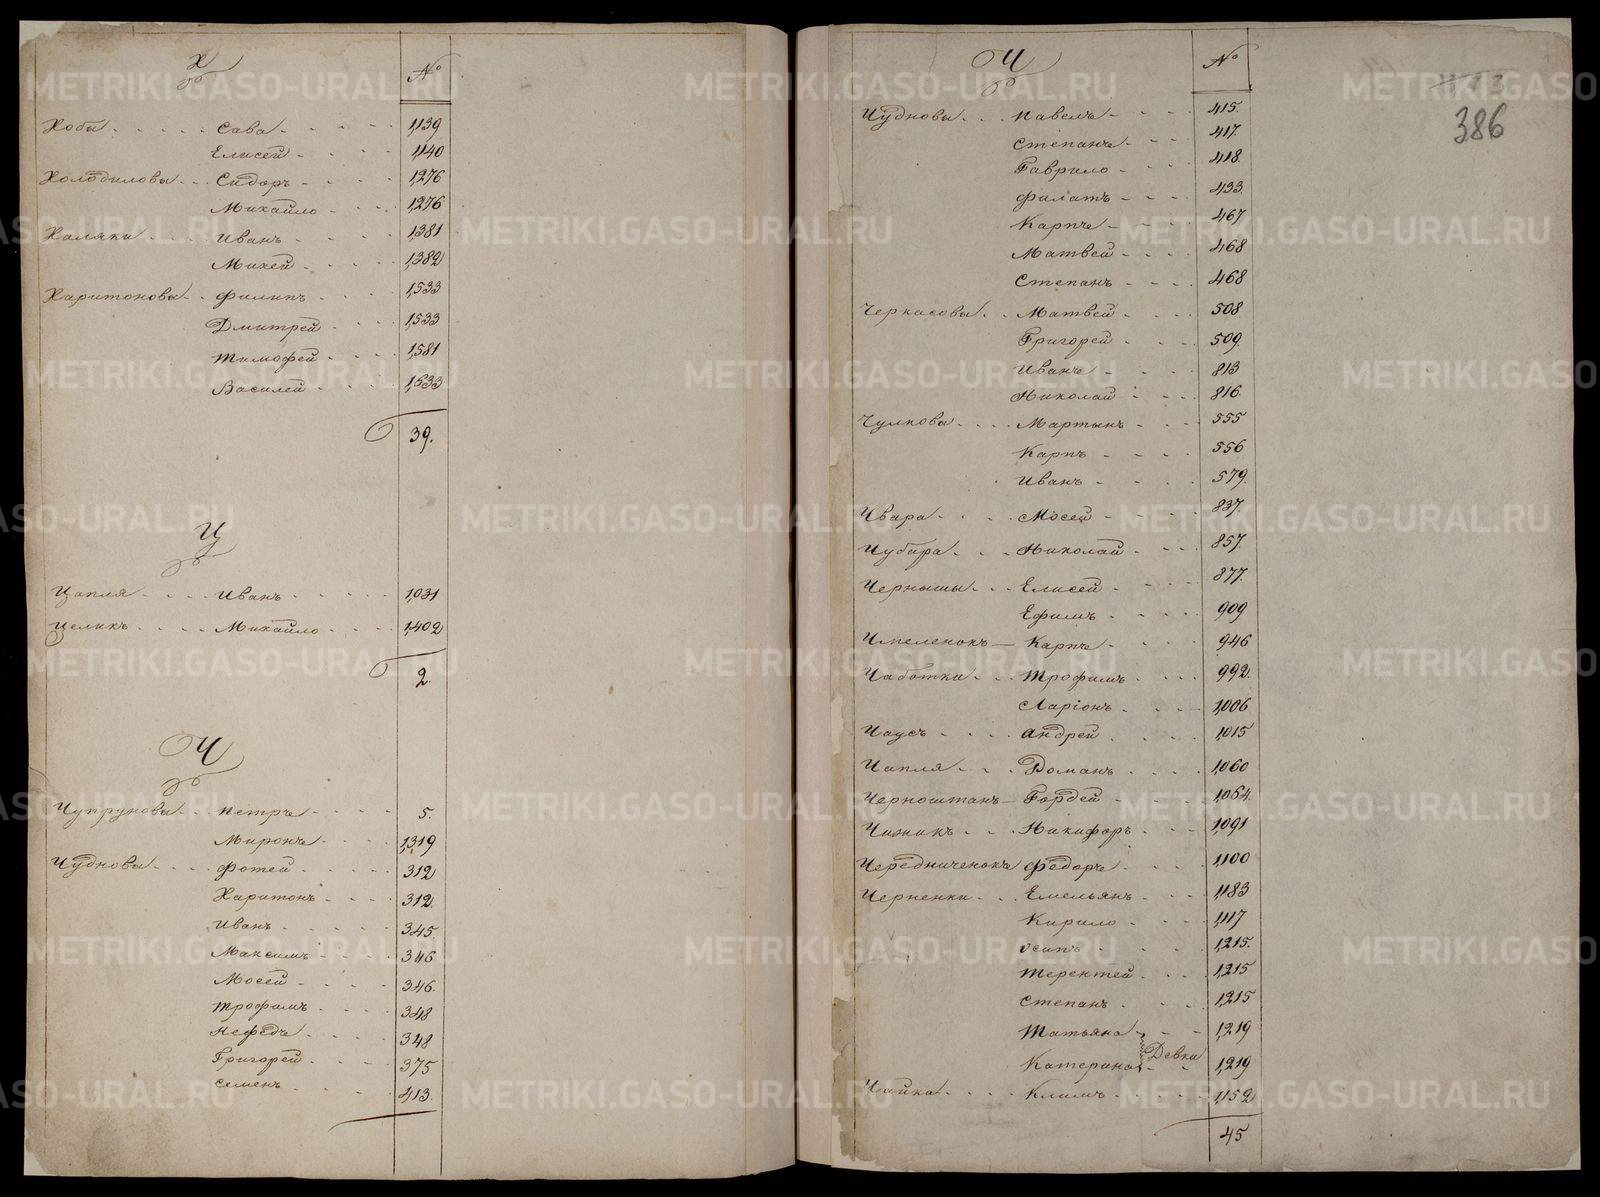 Х №
Хобы Сава 1,139
Елисей 1,140
Холодиловы Сидоръ 1,276
Михайло 1,276
Халяки Иванъ 1,381
Михей 1,382
Харитоновы Филипъ 1,533
Дмитрей 1,533
Тимофей 1,581
Василей 1,633
39.
Ц
Цапля Иванъ 1,031
Целикъ Михайло 1,402
2.
Ч
Чупруновы Петръ 5.
Миронъ 1,319
Чудновы Фотей 312
Харитонъ 312.
Иванъ 345
Максимъ 346
Мосей 346.
Трофимъ 348
Нефедъ 348
Григорей 375
Семенъ 413.
Ч №
386
Чудновы Павелъ 415.
Степанъ 417.
Гаврило 418.
Филатъ 433.
Карпъ 467
Матвей 468
Степанъ 468
Черкасовы Матвей 508
Григорей 509.
Иванъ 813
Николай 816.
Чулковы Мартынъ 555
Карпъ 556
Иванъ 579.
Чвара Мосей 837.
Чубара Николай 857.
Чернышы Елисей 877.
Ефимъ 909
Чмеленокъ Карпъ 946
Чаботки Трофимъ 992.
Ларіонъ 1,006
Чаусъ Андрей 1,015
Чапля Романъ 1,060
Черноштанъ Гордей 1,064.
Чижикъ Никифоръ 1,091
Чередниченокъ Федоръ 1,100
Черненки Емельянъ 1,183
Кирило 1,117
Осипъ 1,215.
Терентей 1,215
Степанъ 1,215
Татьяна 1,219
Девки
Катерина 1,219
Чайка Климъ 1,152
45
METRIKI.GASO-URAL.RU